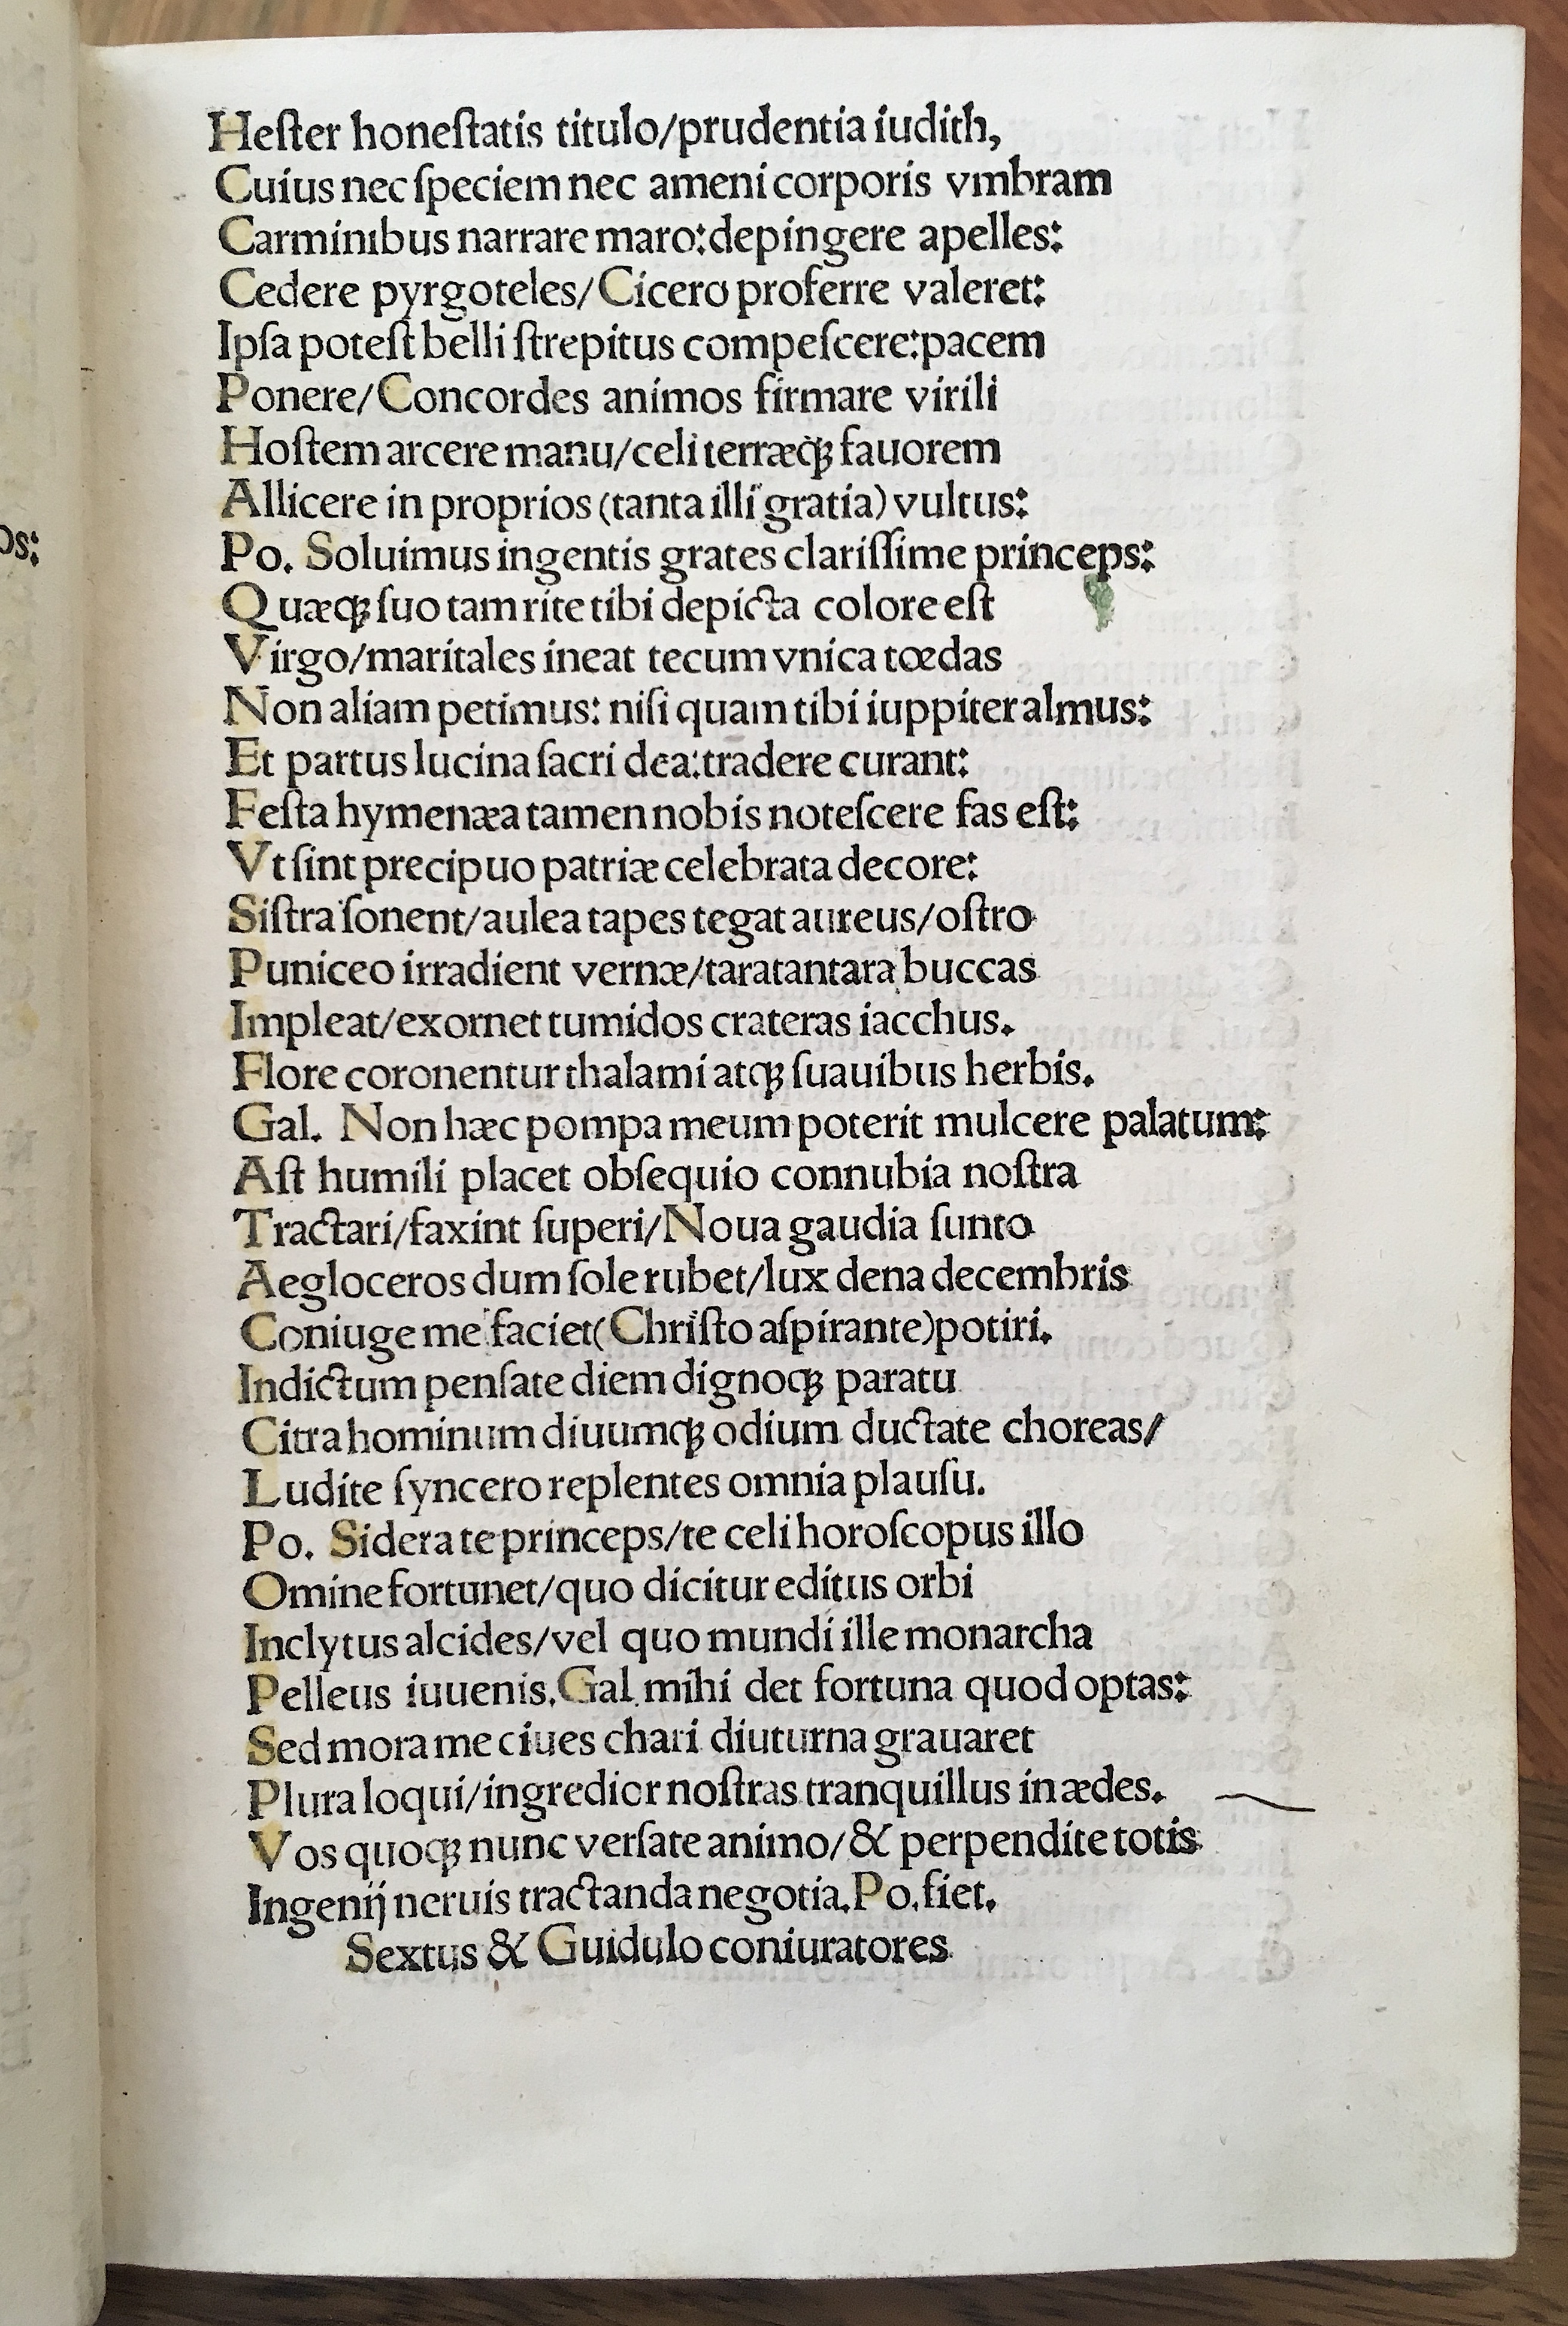 Heſter honeſtatis titulo/prudentia iudith,
Cuius nec ſpeciem nec ameni corporis vmbram
Carminibus narrare maro:depingere apelles:
Cedere pyrgoteles/Cicero proferre valeret:
Ipſa poteſt belli ſtrepitus compeſcere:pacem
Ponere/Concordes animos firmare virili
Hoſtem arcere manu/celi terræq̃ꝫ fauorem
Allicere in proprios (tanta illi gratia) vultus:
os:
Po. Soluimus ingentis grates clariſſime princeps:
Quæqꝫ ſuo tam rite tibi depicta colore eſt
Virgo/maritales ineat tecum vnica tœdas
Non aliam petimus: niſi quam tibi iuppiter almus:
Et partus lucina ſacri dea:tradere curant:
Feſta hymenæa tamen nobis noteſcere fas eſt:
Vt ſint precipuo patriæ celebrata decore:
Siſtra ſonent/aulea tapes tegat aureus/oſtro
Puniceo irradient vernæ/taratantara buccas
Impleat/exornet tumidos crateras iacchus.
Flore coronentur thalami atqꝫ ſuauibus herbis.
Gal. Non hæc pompa meum poterit mulcere palatum:
Aſt humili placet obſequio connubia noſtra
Tractari/faxint ſuperi/Noua gaudia ſunto
Aegloceros dum ſole rubet/lux dena decembris
Coniuge me faciet(Chriſto aſpirante)potiri.
Indictum penſate diem dignoqꝫ paratu
Citra hominum diuumqꝫ odium ductate choreas/
Ludite ſyncero replentes omnia plauſu.
Po. Sidera te princeps/te celi horoſcopus illo
Omine fortunet/quo dicitur editus orbi
Inclytus alcides/vel quo mundi ille monarcha
Pelleus iuuenis.Gal.mihi det fortuna quod optas:
Sed mora me ciues chari diuturna grauaret
Plura loqui/ingredior noſtras tranquillus in ædes.
Vos quoqꝫ nunc verſate animo/& perpendite totis
Ingenij neruis tractanda negotia.Po.fiet.
Sextus & Guidulo coniuratores